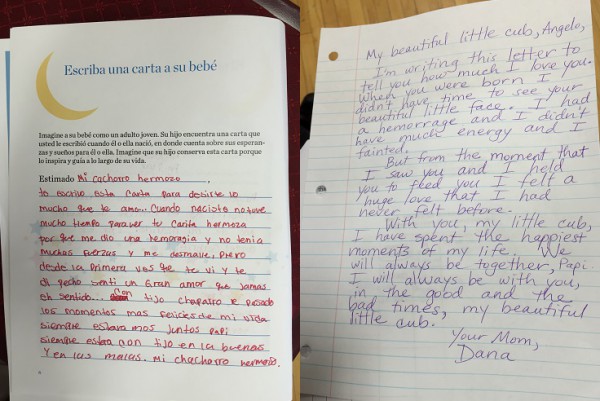 Escriba una carta a su bebé
Imagine a su bebé como un adulto joven. Su hijo encuentra una carta que
usted le escribió cuando él o ella nació, en donde cuenta sobre sus esperan-
zas y sueños para él o ella. Imagine que su hijo conserva esta carta porque
lo inspira y guía a lo largo de su vida.
Estimado Mi cachorro hermozo.
te escribo esta carta para decirte lo
mucho que te amo.. Cuando naciste no tuve
mucho tiempo para ver tu carita hermoza
por que me dio una hemoragia y no tenia
muchas fuerzas y me desmaye, pero
desde la primera ves que te vi y te
di pecho senti un Gran amor que jamas
eh sentido.. Con tijo chaparro e pasado
los momentos mas felicies de mi vida
siempre estaremos juntos papi
siempre estare con tijo en la buenas
Y en las malas. Mi chacharro hermozo.
My beautiful little cub, Angelo,
I'm writing this letter to
tell you how much I love you.
When you were born I
didn't have time to see your
beautiful little face. I had
a hemorrage and I didn't
have much energy and I
fainted.
But from the moment that
I saw you and I held
you to feed you I felt a
huge love that I had
never felt before.
With you, my little cub,
I have spent the happiest
moments of my life. We
will always be together, Papi.
I will always be with you,
in the good and the
bad times, my beautiful
little cub.
Your Mom,
Dana